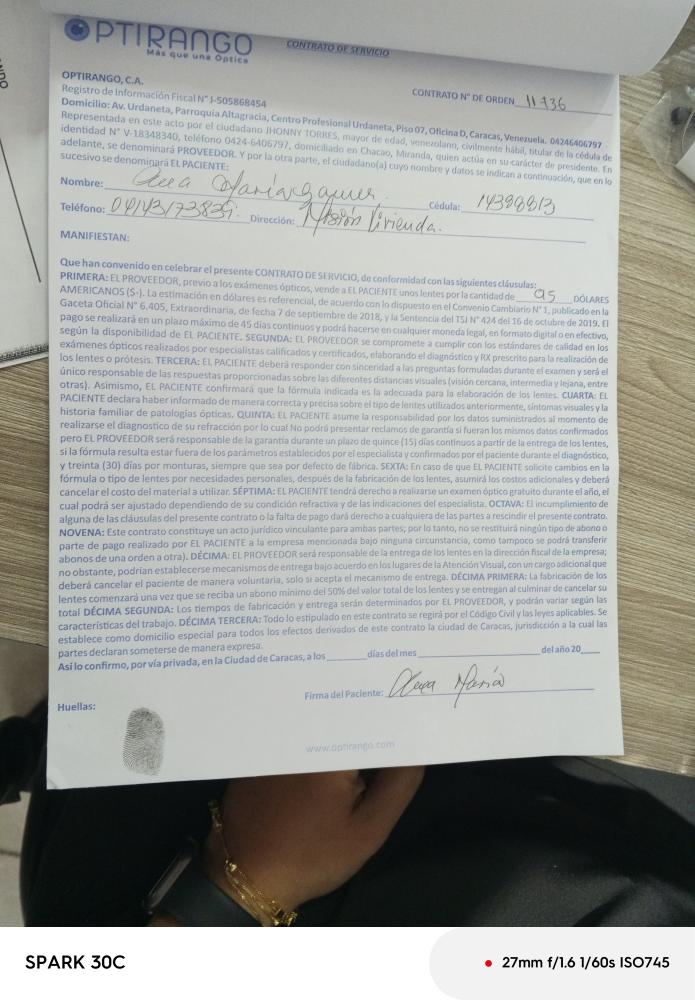 OPTIRANGO
Más que una Óptica
CONTRATO DE SERVICIO
OPTIRANGO, C.A.
CONTRATO N° DE ORDEN 11736
Registro de Información Fiscal N° J-505868454
Domicilio: Av. Urdaneta, Parroquia Altagracia, Centro Profesional Urdaneta, Piso 07, Oficina D, Caracas, Venezuela. 04246406797
Representada en este acto por el ciudadano JHONNY TORRES, mayor de edad, venezolano, civilmente hábil, titular de la cédula de
identidad N° V-18348340, teléfono 0424-6406797, domiciliado en Chacao, Miranda, quien actúa en su carácter de presidente. En
adelante, se denominará PROVEEDOR. Y por la otra parte, el ciudadano(a) cuyo nombre y datos se indican a continuación, que en lo
sucesivo se denominará EL PACIENTE:
Nombre: Ana María Cédula: 14398813
Teléfono: Dirección: Misión Vivienda.
MANIFIESTAN:
Que han convenido en celebrar el presente CONTRATO DE SERVICIO, de conformidad con las siguientes cláusulas:
PRIMERA: EL PROVEEDOR, previo a los exámenes ópticos, vende a EL PACIENTE unos lentes por la cantidad de 95 DÓLARES
AMERICANOS ($-). La estimación en dólares es referencial, de acuerdo con lo dispuesto en el Convenio Cambiario N° 1, publicado en la
Gaceta Oficial N° 6.405, Extraordinaria, de fecha 7 de septiembre de 2018, y la Sentencia del TSJ N° 424 del 16 de octubre de 2019. El
pago se realizará en un plazo máximo de 45 días continuos y podrá hacerse en cualquier moneda legal, en formato digital o en efectivo,
según la disponibilidad de EL PACIENTE. SEGUNDA: EL PROVEEDOR se compromete a cumplir con los estándares de calidad en los
exámenes ópticos realizados por especialistas calificados y certificados, elaborando el diagnóstico y RX prescrito para la realización de
los lentes o prótesis. TERCERA: EL PACIENTE deberá responder con sinceridad a las preguntas formuladas durante el examen y será el
único responsable de las respuestas proporcionadas sobre las diferentes distancias visuales (visión cercana, intermedia y lejana, entre
otras). Asimismo, EL PACIENTE confirmará que la fórmula indicada es la adecuada para la elaboración de los lentes. CUARTA: EL
PACIENTE declara haber informado de manera correcta y precisa sobre el tipo de lentes utilizados anteriormente, síntomas visuales y la
historia familiar de patologías ópticas. QUINTA: EL PACIENTE asume la responsabilidad por los datos suministrados al momento de
realizarse el diagnostico de su refracción por lo cual No podrá presentar reclamos de garantía si fueran los mismos datos confirmados
pero EL PROVEEDOR será responsable de la garantía durante un plazo de quince (15) días continuos a partir de la entrega de los lentes,
si la fórmula resulta estar fuera de los parámetros establecidos por el especialista y confirmados por el paciente durante el diagnóstico,
y treinta (30) días por monturas, siempre que sea por defecto de fábrica. SEXTA: En caso de que EL PACIENTE solicite cambios en la
fórmula o tipo de lentes por necesidades personales, después de la fabricación de los lentes, asumirá los costos adicionales y deberá
cancelar el costo del material a utilizar. SÉPTIMA: EL PACIENTE tendrá derecho a realizarse un examen óptico gratuito durante el año, el
cual podrá ser ajustado dependiendo de su condición refractiva y de las indicaciones del especialista. OCTAVA: El incumplimiento de
alguna de las cláusulas del presente contrato o la falta de pago dará derecho a cualquiera de las partes a rescindir el presente contrato.
NOVENA: Este contrato constituye un acto jurídico vinculante para ambas partes; por lo tanto, no se restituirá ningún tipo de abono o
parte de pago realizado por EL PACIENTE a la empresa mencionada bajo ninguna circunstancia, como tampoco se podrá transferir
abonos de una orden a otra). DÉCIMA: EL PROVEEDOR será responsable de la entrega de los lentes en la dirección fiscal de la empresa;
no obstante, podrían establecerse mecanismos de entrega bajo acuerdo en los lugares de la Atención Visual, con un cargo adicional que
deberá cancelar el paciente de manera voluntaria, solo si acepta el mecanismo de entrega. DÉCIMA PRIMERA: La fabricación de los
lentes comenzará una vez que se reciba un abono mínimo del 50% del valor total de los lentes y se entregan al culminar de cancelar su
total DÉCIMA SEGUNDA: Los tiempos de fabricación y entrega serán determinados por EL PROVEEDOR, y podrán variar según las
características del trabajo. DÉCIMA TERCERA: Todo lo estipulado en este contrato se regirá por el Código Civil y las leyes aplicables. Se
establece como domicilio especial para todos los efectos derivados de este contrato la ciudad de Caracas, jurisdicción a la cual las
partes declaran someterse de manera expresa.
Así lo confirmo, por vía privada, en la Ciudad de Caracas, a los ____ días del mes ____ del año 20__
Firma del Paciente: Ana María
Huellas:
www.optirango.com
SPARK 30C
27mm f/1.6 1/60s ISO745